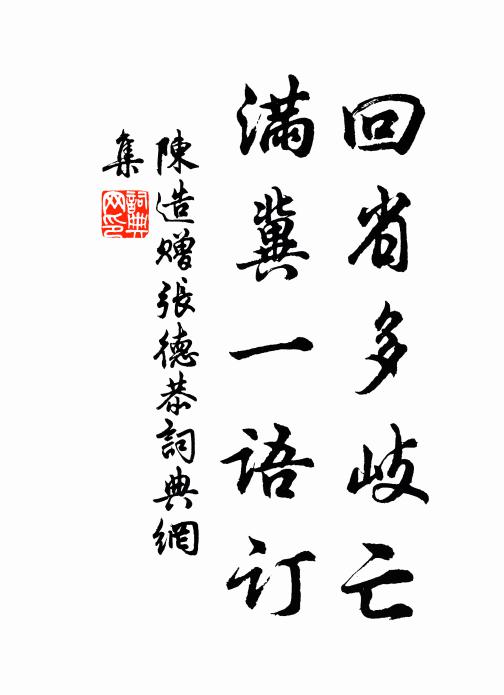 回省多歧亡
满冀一语订
陳造赠張德恭詞典網
集
詞典
网印